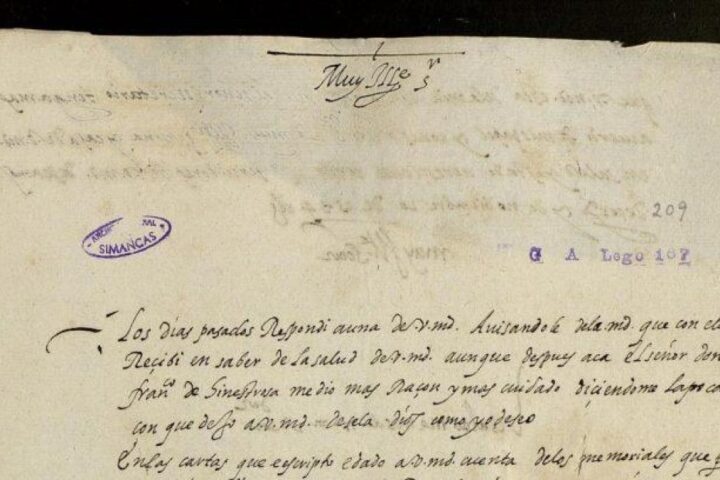 Muy Ill.e s.r
209
SIMANCAS
G A Lego 187
Los dias pasados Respondi a una de v. md. Avisandole dela md. que con el
Reçibi en saber de la salud de v. md. aunque despues aca el señor don
fran.co de Hinestrosa me dio mas Raçon y mas cuidado diçiendome la poca
con que dexo a v. md. desela dios como yo deseo
En las cartas que e escripto e dado a v. md. cuenta de los memoriales que